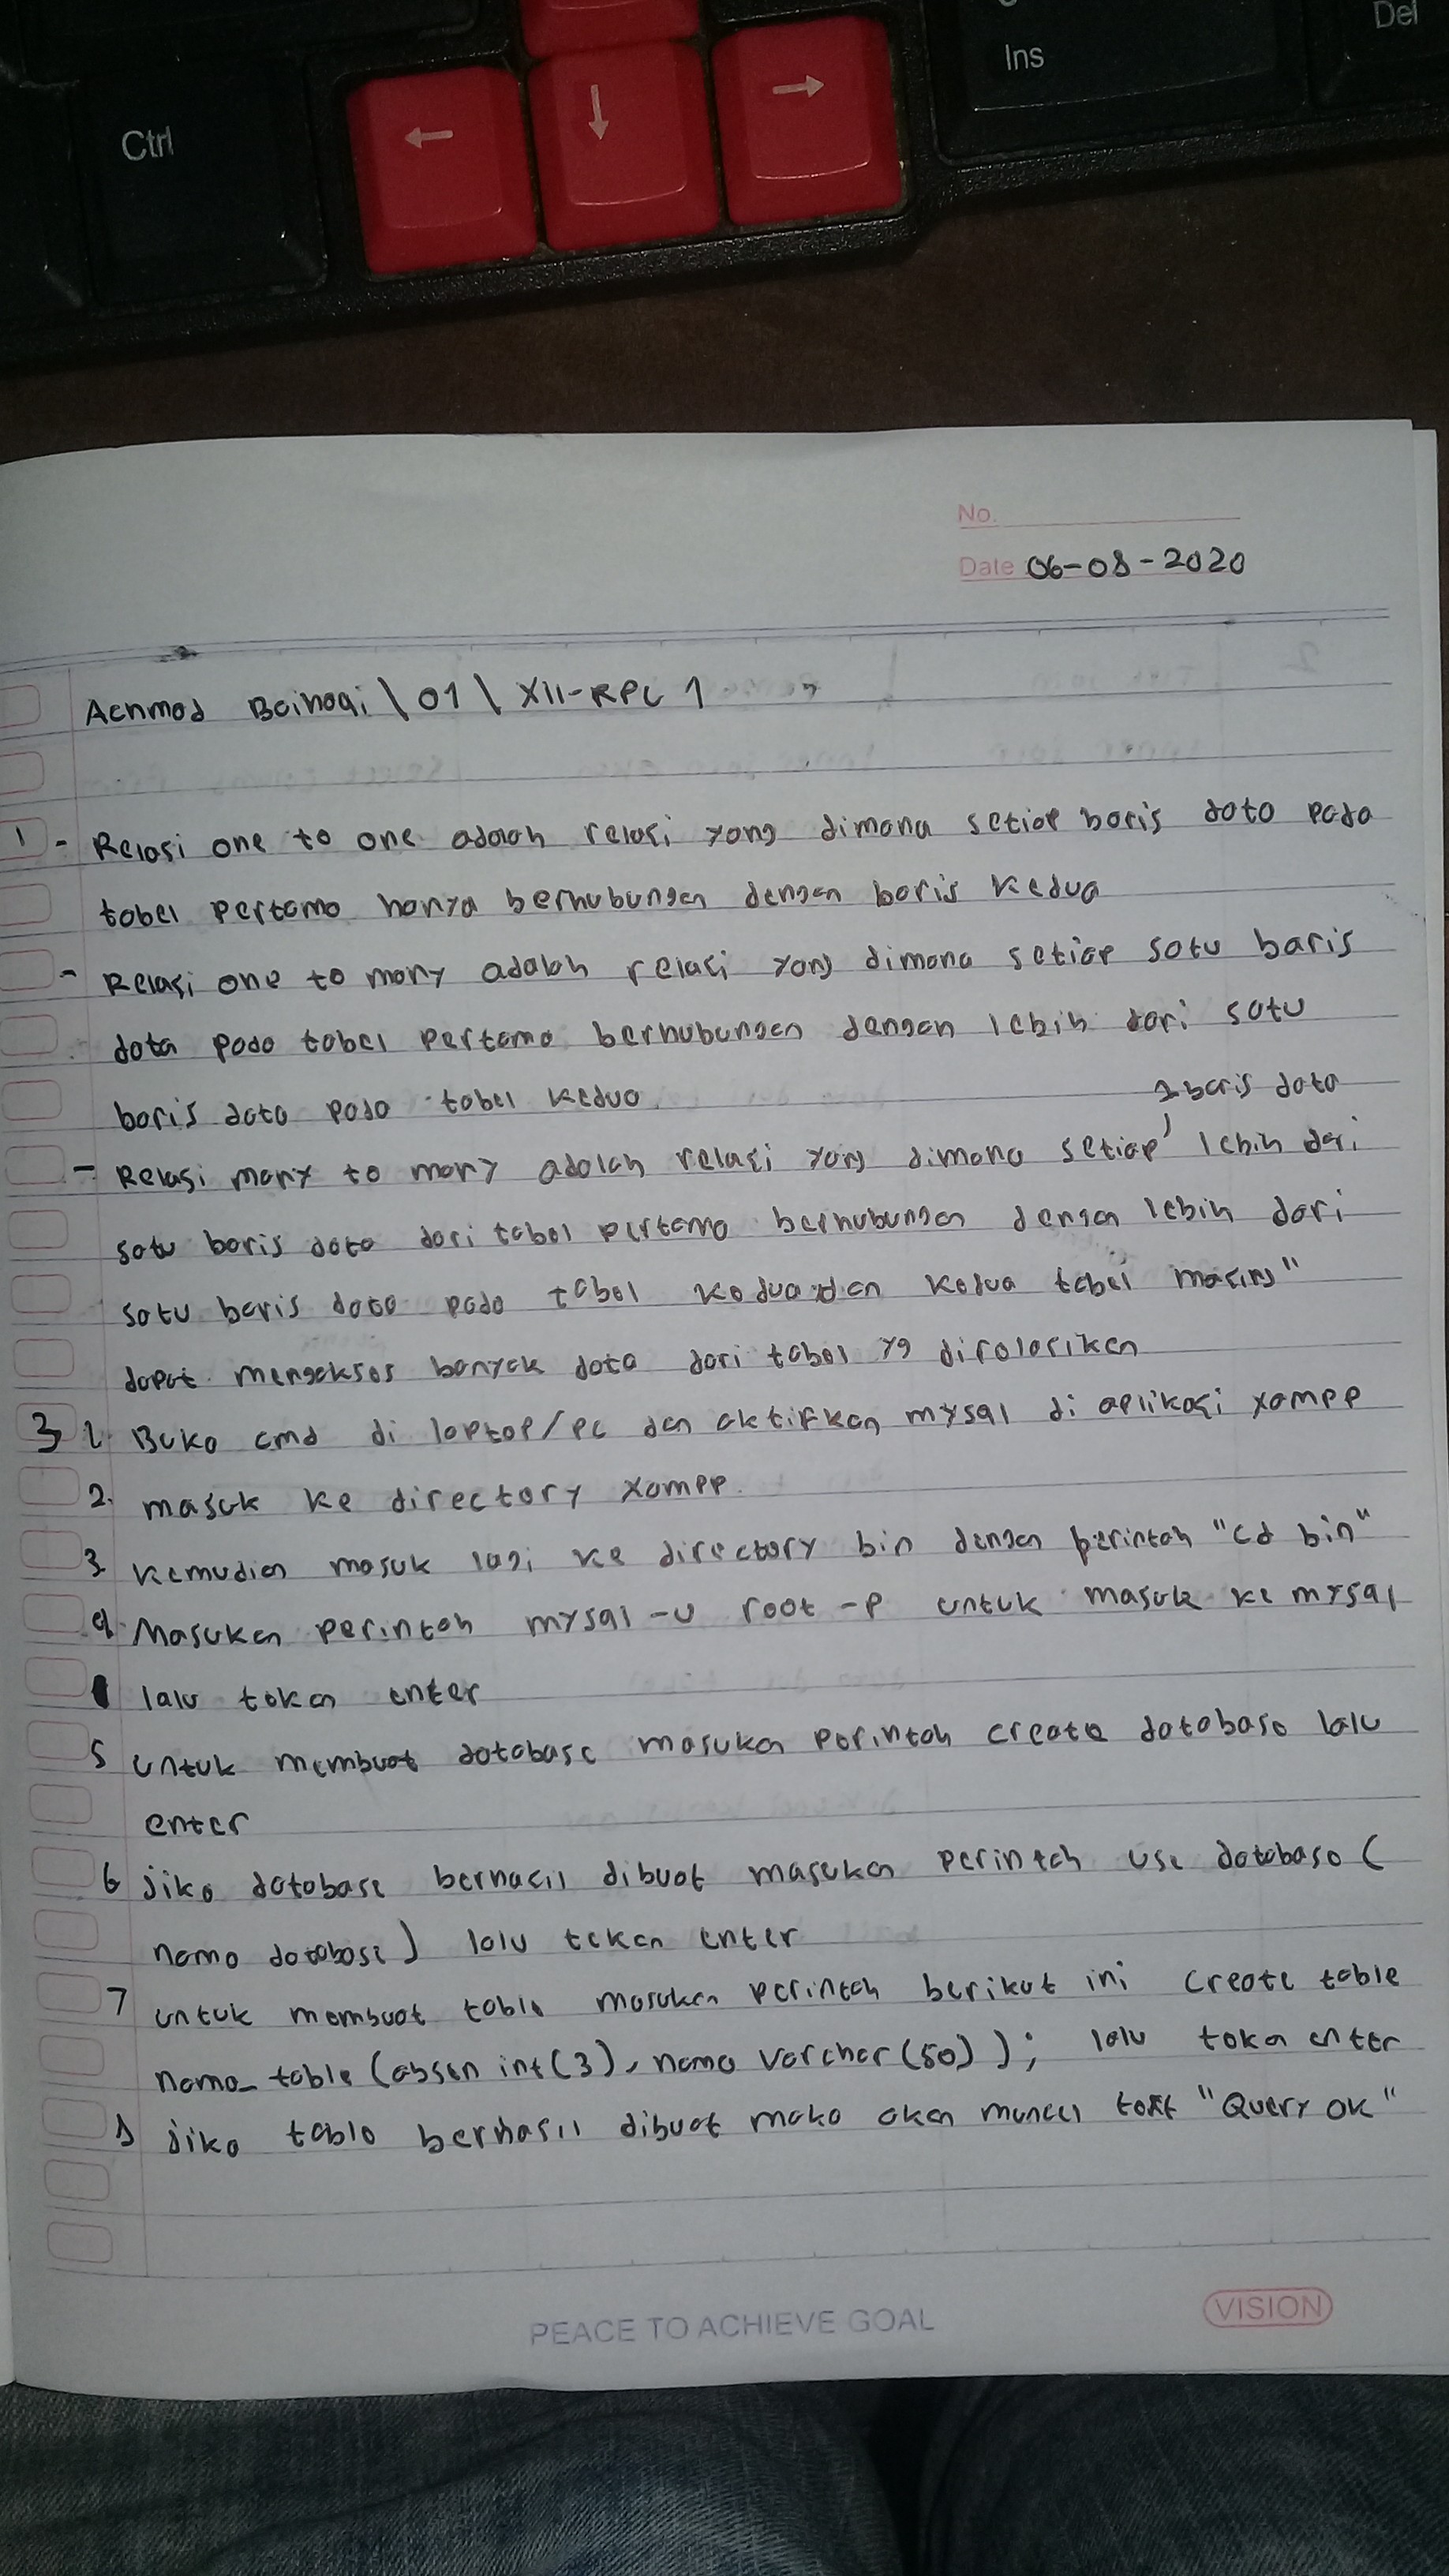 Ctrl
←
↓
→
Ins
Del
No.
Date 06-08-2020
Achmad Baihaqi \ 01 \ XII-RPL 1
1 - Relasi one to one adalah relasi yang dimana setiap baris data pada
tabel pertama hanya berhubungan dengan baris kedua
- Relasi one to many adalah relasi yang dimana setiap satu baris
data pada tabel pertama berhubungan dengan lebih dari satu
baris data pada tabel kedua.
baris data
- Relasi many to many adalah relasi yang dimana setiap lebih dari
satu baris data dari tabel pertama berhubungan dengan lebih dari
satu baris data pada tabel kedua dan kedua tabel masing"
dapat mengakses banyak data dari tabel yg direlasikan
3 1. Buka cmd di laptop/pc dan aktifkan mysql di aplikasi xampp
2. masuk ke directory xampp.
3. kemudian masuk lagi ke directory bin dengan perintah "cd bin"
4. Masukan perintah mysql -u root -p untuk masuk ke mysql
lalu tekan enter
5 untuk membuat database masukan perintah create database lalu
enter
6 jika database berhasil dibuat masukan perintah use database (
nama database) lalu tekan enter
7 untuk membuat table masukan perintah berikut ini create table
nama_table (absen int(3), nama varchar(50)); lalu tekan enter
8 jika table berhasil dibuat maka akan muncul text "Query OK"
PEACE TO ACHIEVE GOAL
VISION